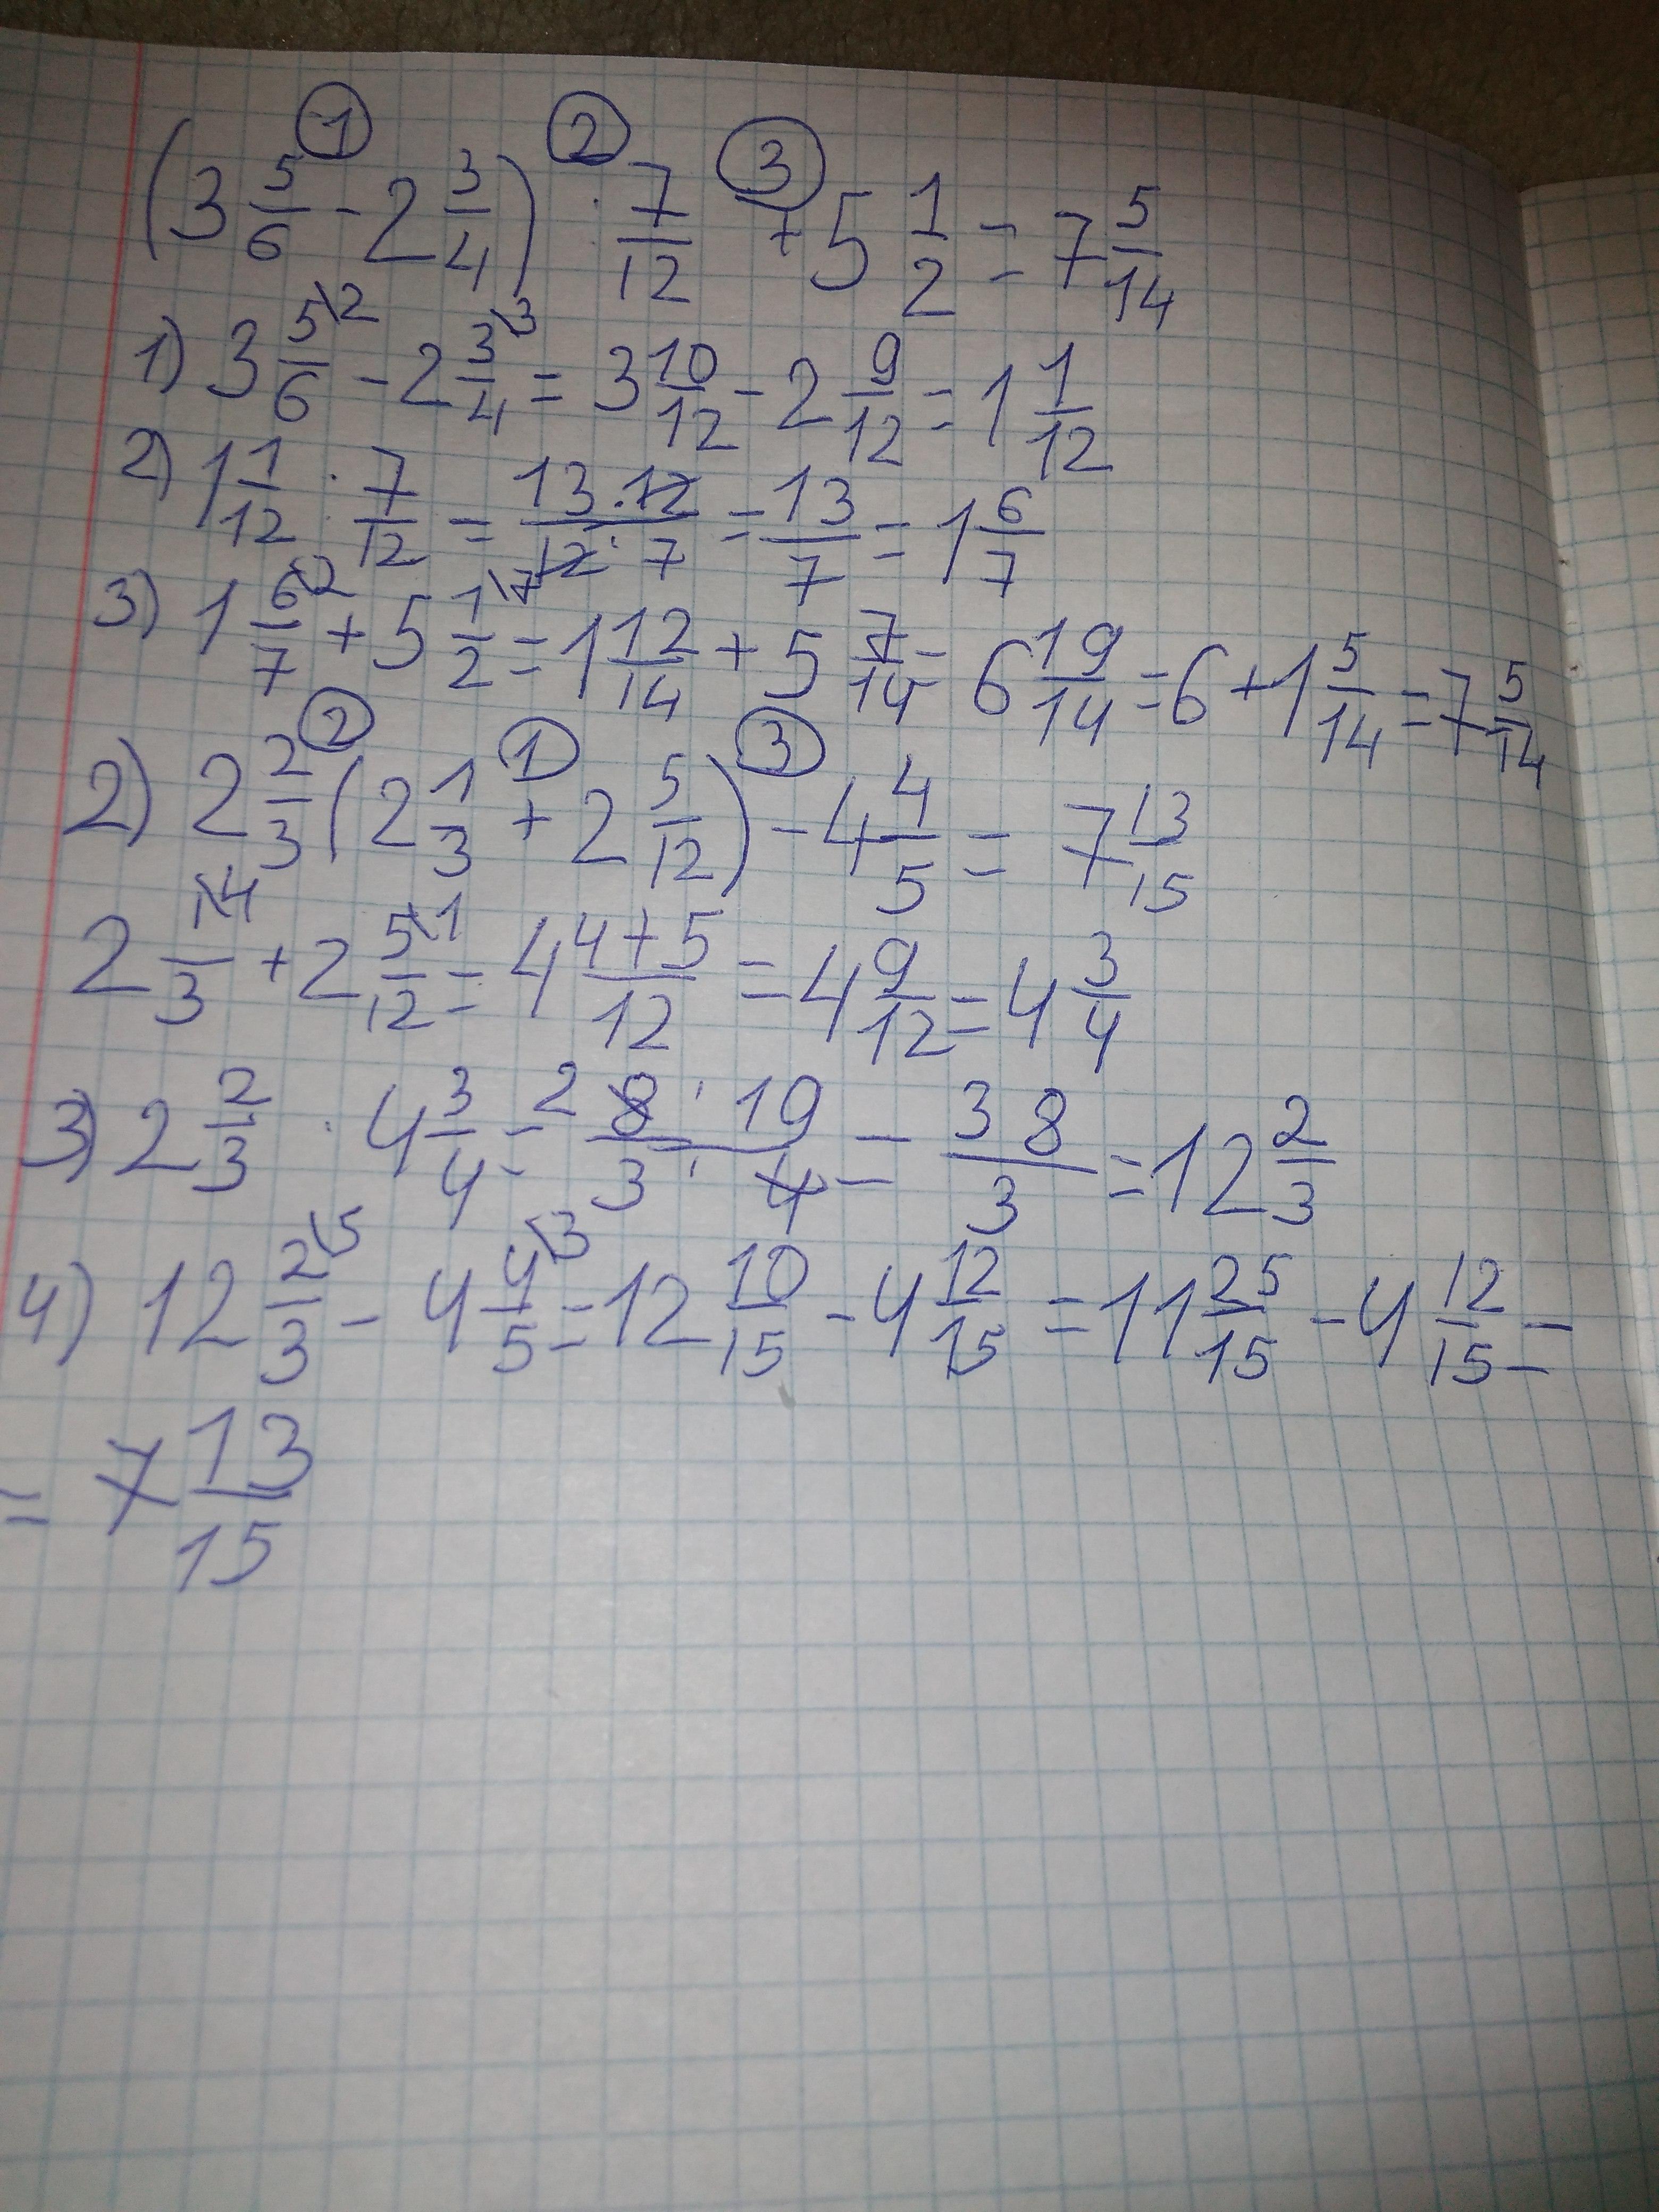 (3 5/6 - 2 3/4) ① : 7/12 ② + 5 1/2 ③ = 7 5/14
1) 3 5\2/6 - 2 3\3/4 = 3 10/12 - 2 9/12 = 1 1/12
2) 1 1/12 : 7/12 = 13·12/12·7 = 13/7 = 1 6/7
3) 1 6\2/7 + 5 1\7/2 = 1 12/14 + 5 7/14 = 6 19/14 = 6 + 1 5/14 = 7 5/14
2) 2 2/3 ② (2 1/3 ① + 2 5/12) ③ - 4 4/5 = 7 13/15
2 1\4/3 + 2 5\1/12 = 4 4+5/12 = 4 9/12 = 4 3/4
3) 2 2/3 · 4 3/4 = 2 8·19/3·4 = 38/3 = 12 2/3
4) 12 2\5/3 - 4 4\3/5 = 12 10/15 - 4 12/15 = 11 25/15 - 4 12/15 =
= 7 13/15